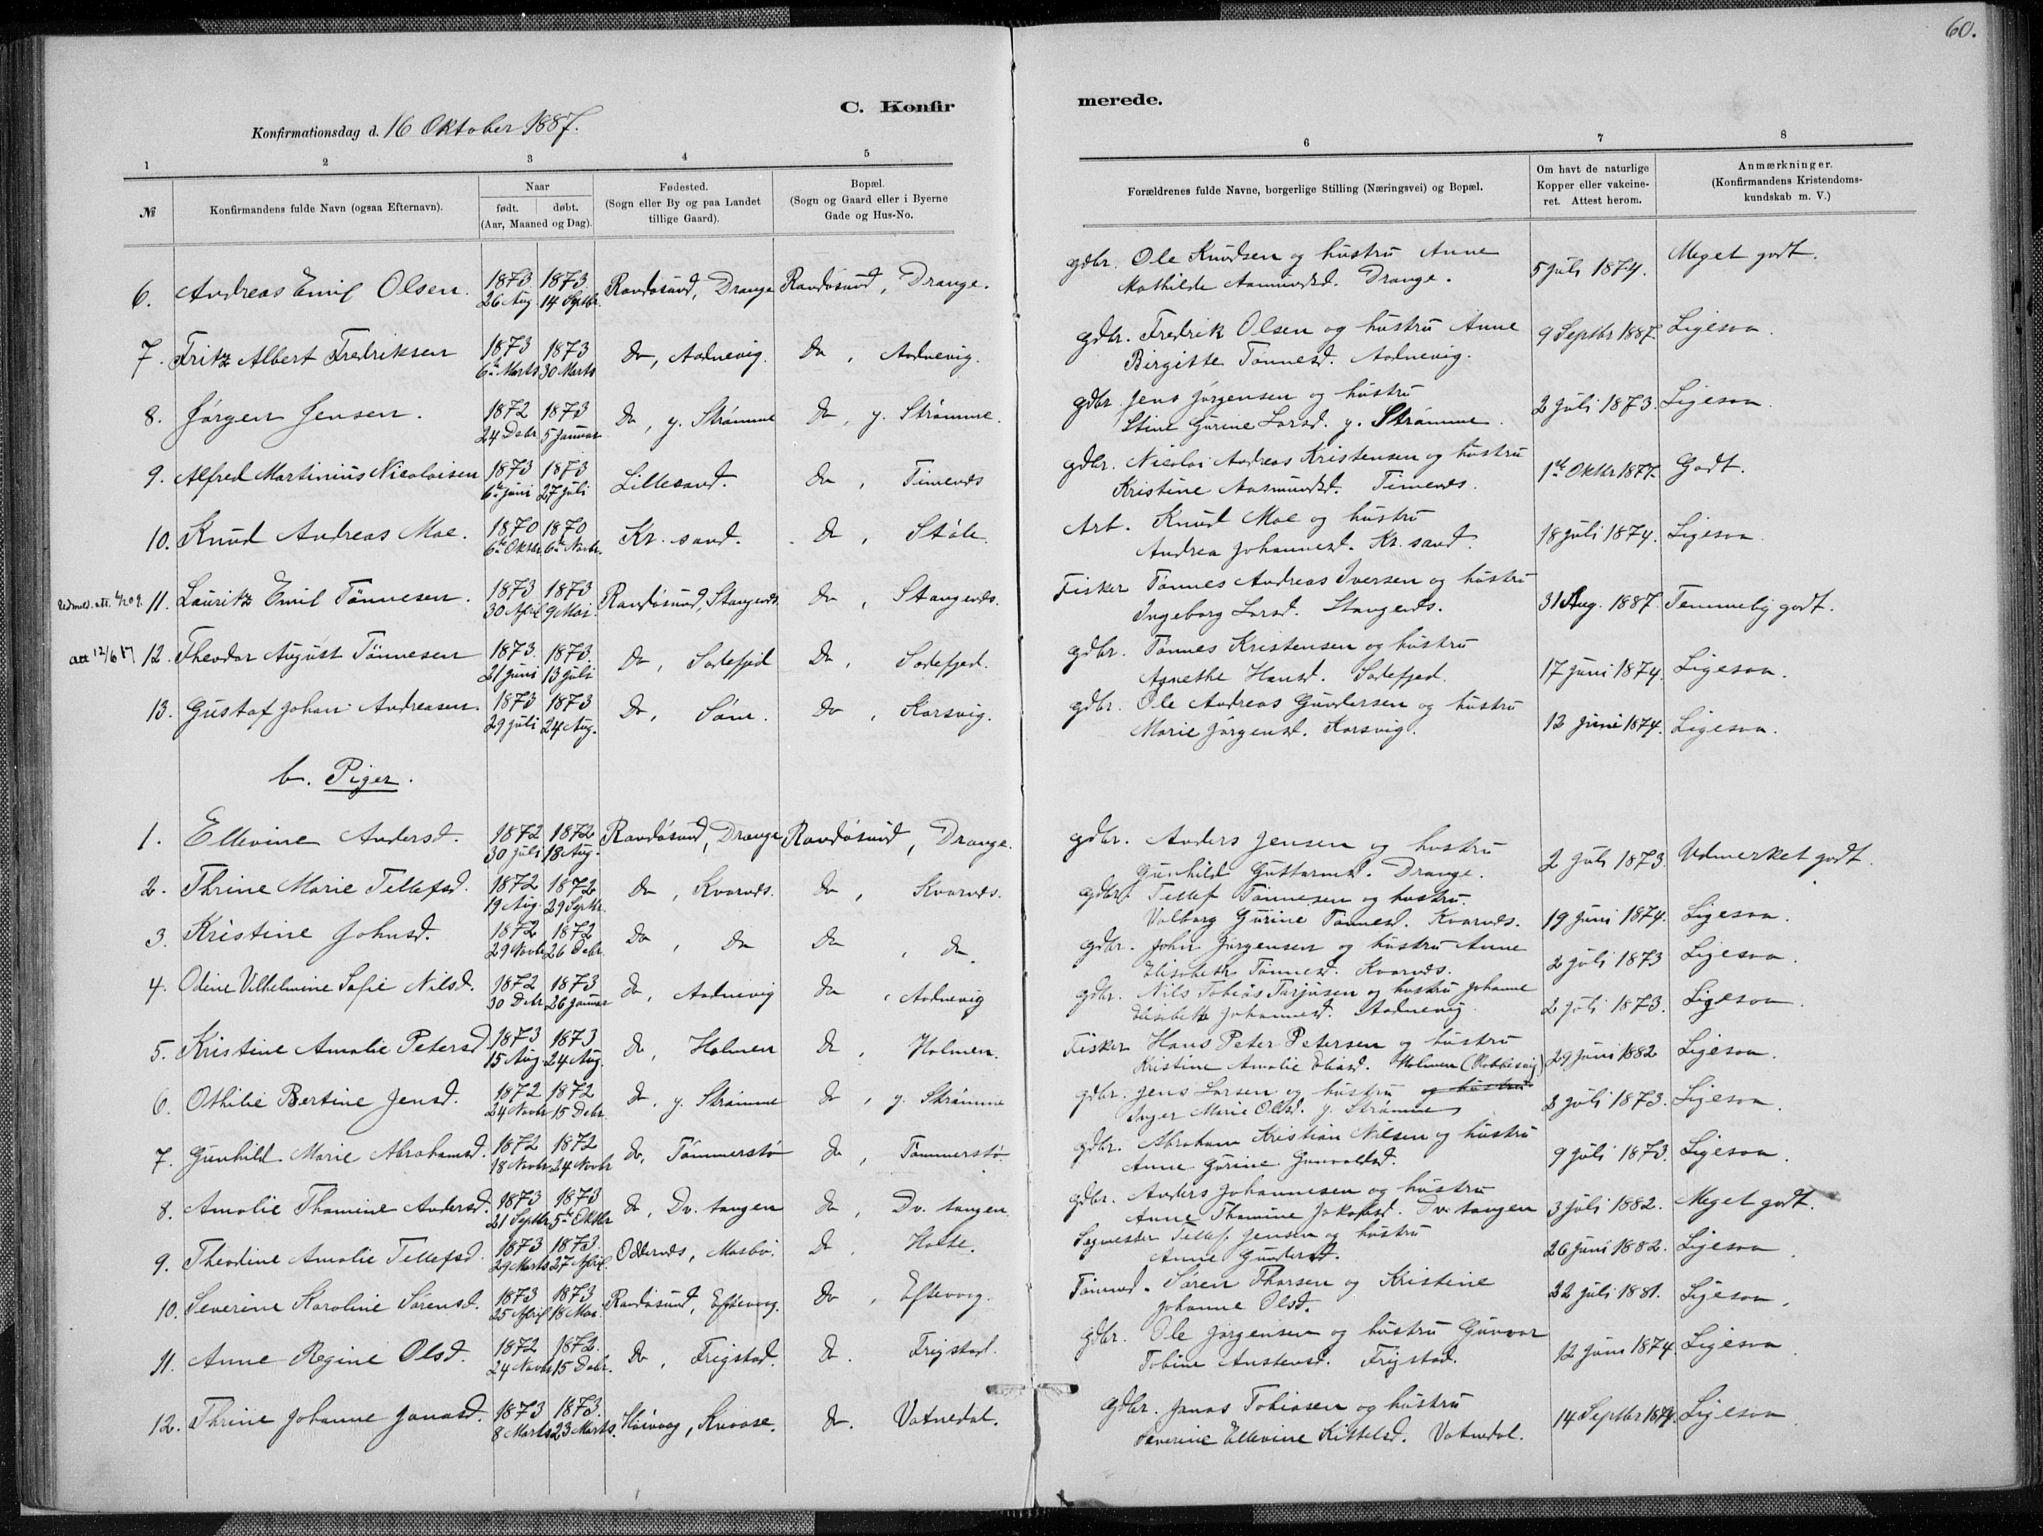 60.
C. Konfir
merede.
Konfirmationsdag d. 16 Oktober 1887.
1 2 3 4 5 6 7 8
№
Konfirmandens fulde Navn (ogsaa Efternavn).
Naar
født. døbt.
(Aar, Maaned og Dag).
Fødested.
(Sogn eller By og paa Landet
tillige Gaard).
Bopæl.
(Sogn og Gaard eller i Byerne
Gade og Hus-No.
Forældrenes fulde Navne, borgerlige Stilling (Næringsvei) og Bopæl.
Om havt de naturlige
Kopper eller vakcine-
ret. Attest herom.
Anmærkninger.
(Konfirmandens Kristendoms-
kundskab m. V.)
6. Andreas Emil Olsen. 1873 26 Aug. 1873 14 Septbr. Randøsund, Drange Randøsund, Drange. gdbr. Ole Knudsen og hustru Anne
Mathilde Aamundsd. Drange. 5 juli 1874. Meget godt.
7. Fritz Albert Fredriksen 1873 6te Marts 1873 30 Marts Do, Aadnevig. Do, Aadnevig. gdbr. Fredrik Olsen og hustru Anne
Birgitte Tønnesd. Aadnevig. 9 Septbr 1887. Ligesaa.
8. Jørgen Jensen. 1872 24 Debr. 1873 5 Januar Do, y. Strømme Do, y. Strømme. gdbr. Jens Jørgensen og hustru
Stine Gurine Larsd. y. Strømme. 2 juli 1873. Ligesaa.
9. Alfred Martinius Nicolaisen 1873 6te juni 1873 27 juli Lillesand. Do, Timenes gdbr. Nicolai Andreas Kristensen og hustru
Kristine Aasmundsd. Timenes. 1ste Oktbr 1877. Godt.
10. Knud Andreas Moe. 1870 6te Oktbr. 1870 6te Novbr. Kr.sand. Do, Støle. Arb. Knud Moe og hustru
Andrea Johannesd. Kr.sand. 18 juli 1874. Ligesaa
11. Lauritz Emil Tønnesen. 1873 30 April 1873 9 Mai. Randøsund, Stangenes. Do, Stangenes. Fisker Tønnes Andreas Iversen og hustru
Ingeborg Larsd. Stangenes. 31 Aug. 1887. Temmelig godt.
att 12/6 17 12. Theodor August Tønnesen 1873. 21 juni 1873 13 juli Do, Sodefjed Do, Sodefjed. gdbr. Tønnes Kristensen og hustru
Agnethe Hansd. Sodefjed. 17 juni 1874. Ligesaa.
13. Gustaf Johan Andreasen. 1873 29 juli 1873 24 Aug. Do, Søm. Do, Korsvig. gdbr. Ole Andreas Gundersen og hustru
Marie Jørgensd. Korsvig. 12 juni 1874. Ligesaa.
b. Piger.
1. Ellevine Andersd. 1872 30 juli 1872 18 Aug. Randøsund, Drange Randøsund, Drange. gdbr. Anders Jensen og hustru
Gunhild Guttormsd. Drange. 2 juli 1873. Udmerket godt.
2. Thrine Marie Tellefsd. 1872 19 Aug. 1872 29 Septbr. Do, Kvarnes. Do, Kvarnes. gdbr. Tellef Tønnesen og hustru
Valborg Gurine Tønnesd. Kvarnes. 19 juni 1874. Ligesaa.
3. Kristine Johnsd. 1872 29 Novbr 1872 26 Debr. Do, Do Do, do. gdbr. John Jørgensen og hustru Anne
Elisabeth Tønnesd. Kvarnes. 2 juli 1873 Ligesaa.
4. Odine Vilhelmine Sofie Nilsd. 1872 30 Debr 1873 26 Januar do, Aadnevig Do, Aadnevig gdbr. Nils Tobias Tarjusen og hustru Johanne
Elisabeth Johannesd. Aadnevig. 2 juli 1873. Ligesaa.
5. Kristine Amalie Petersd. 1873 15 Aug. 1873 24 Aug. Do, Holmen Do, Holmen. Fisker Hans Peter Petersen og hustru
Kristine Amalie Eliasd. Holmen (Kobbevig) 29 juni 1882 Ligesaa.
6. Othilie Bertine Jensd. 1872 24 Novbr 1872 15 Debr. Do, y. Strømme Do, y. Strømme gdbr. Jens Larsen og hustru og hustru
Inger Marie Olsd. y. Strømme 2 juli 1873. Ligesaa.
7. Gunhild Marie Abrahamsd. 1872 18 Novbr. 1872 24 Novbr Do, Tømmerstø Do, Tømmerstø. gdbr. Abraham Kristian Nilsen og hustru
Anne Gurine Gunvaldsd. 9 juli 1873. Ligesaa.
8. Amalie Thomine Andersd. 1873 21 Septbr 1873 5te Oktbr Do, Dv. tangen Do, Dv. tangen. gdbr. Anders Johannesen og hustru
Anne Thomine Jakobsd. Dv. tangen 3 juli 1882. Meget godt.
9. Theodine Amalie Tellefsd. 1873 29 Marts 1873. 27 April. Odernes, Mosbø. Do, Holte. Sagmester Tellef Jensen og hustru
Anne Gundersd. 26 juni 1882. Ligesaa.
10. Severine Karoline Sørensd. 1873 25 April 1873 18 Mai. Randøsund, Eftevaag. Do, Eftevaag. Tømmerm. Søren Thorsen og Kristine
Johanne Olsd. 22 juli 1881. Ligesaa.
11. Anne Regine Olsd. 1872 24 Novbr 1872. 15 Debr. Do, Frigstad. Do. Frigstad. gdbr. Ole Jørgensen og hustru Gunvor
Tobine Anstensd. Frigstad. 12 juni 1874. Ligesaa
12. Thrine Johanne Jonasd. 1873 8 Marts 1873. 23 Marts. Høivaag, Kvaase. Do. Vatnedal. gdbr. Jonas Tobiasen og hustru
Severine Ellevine Kittelsd. Vatnedal. 14 Septbr 1874. Ligesaa.